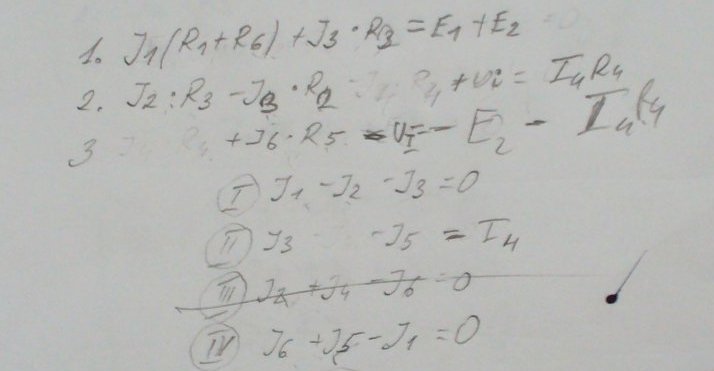 1. J1(R1+R6) +J3·R3 = E1+E2
2. J2·R3 -J3·R2 +Ui = I4R4
3 +J6·R5 = Ui - E2 - I4R4
I J1 -J2 -J3=0
II J3 -J5 = I4
III J2 +J4 -J6=0
IV J6 +J5-J1=0